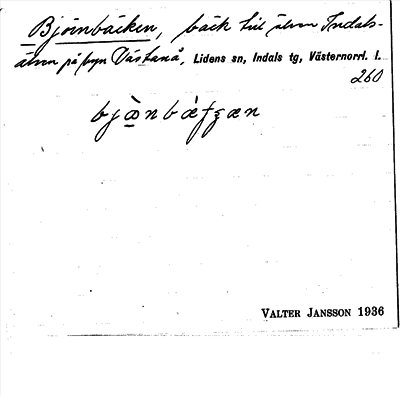 Björnbäcken, bäck till älven Indals-
älven på byn Västanå, Lidens sn, Indals tg, Västernorrl. l.
260
VALTER JANSSON 1936